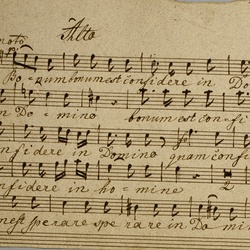 Alto
moto
Bo - num bonum est confidere in Do
in Do - mino bonum est confi
onfidere in Domino quam confi
onfidere in ho - mine
est sperare sperare in Do mi